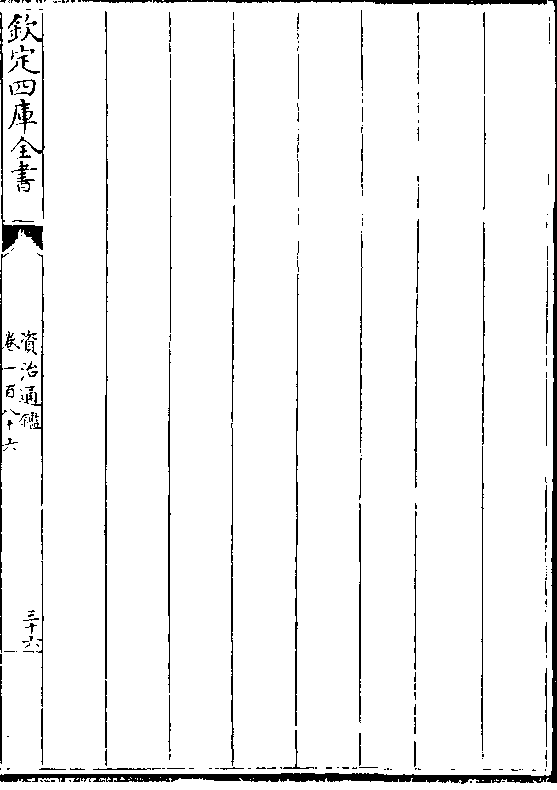 欽定四庫全書
資治通鑑
卷一百八十六
三十六